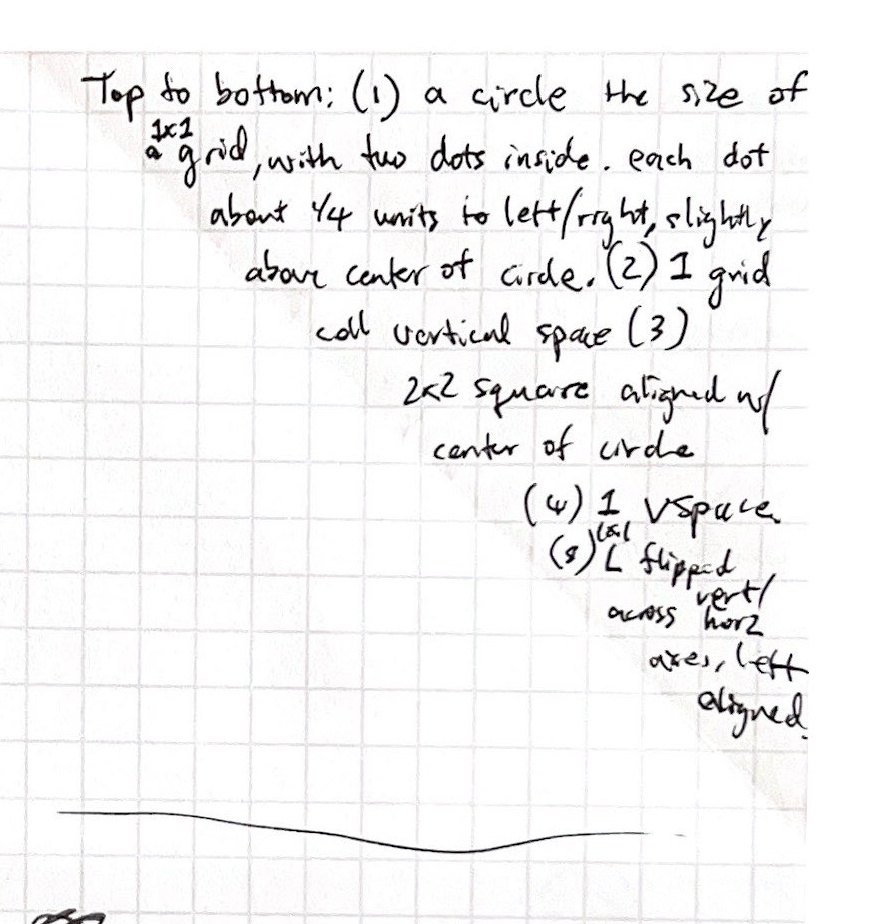 Top to bottom: (1) a circle the size of
1x1
a grid, with two dots inside. each dot
about 1/4 units to left/right, slightly
above center of circle. (2) 1 grid
cell vertical space (3)
2x2 square aligned w/
center of circle
(4) 1 vspace
1x1
(5) L flipped
vert/
across horz
axes, left
aligned.